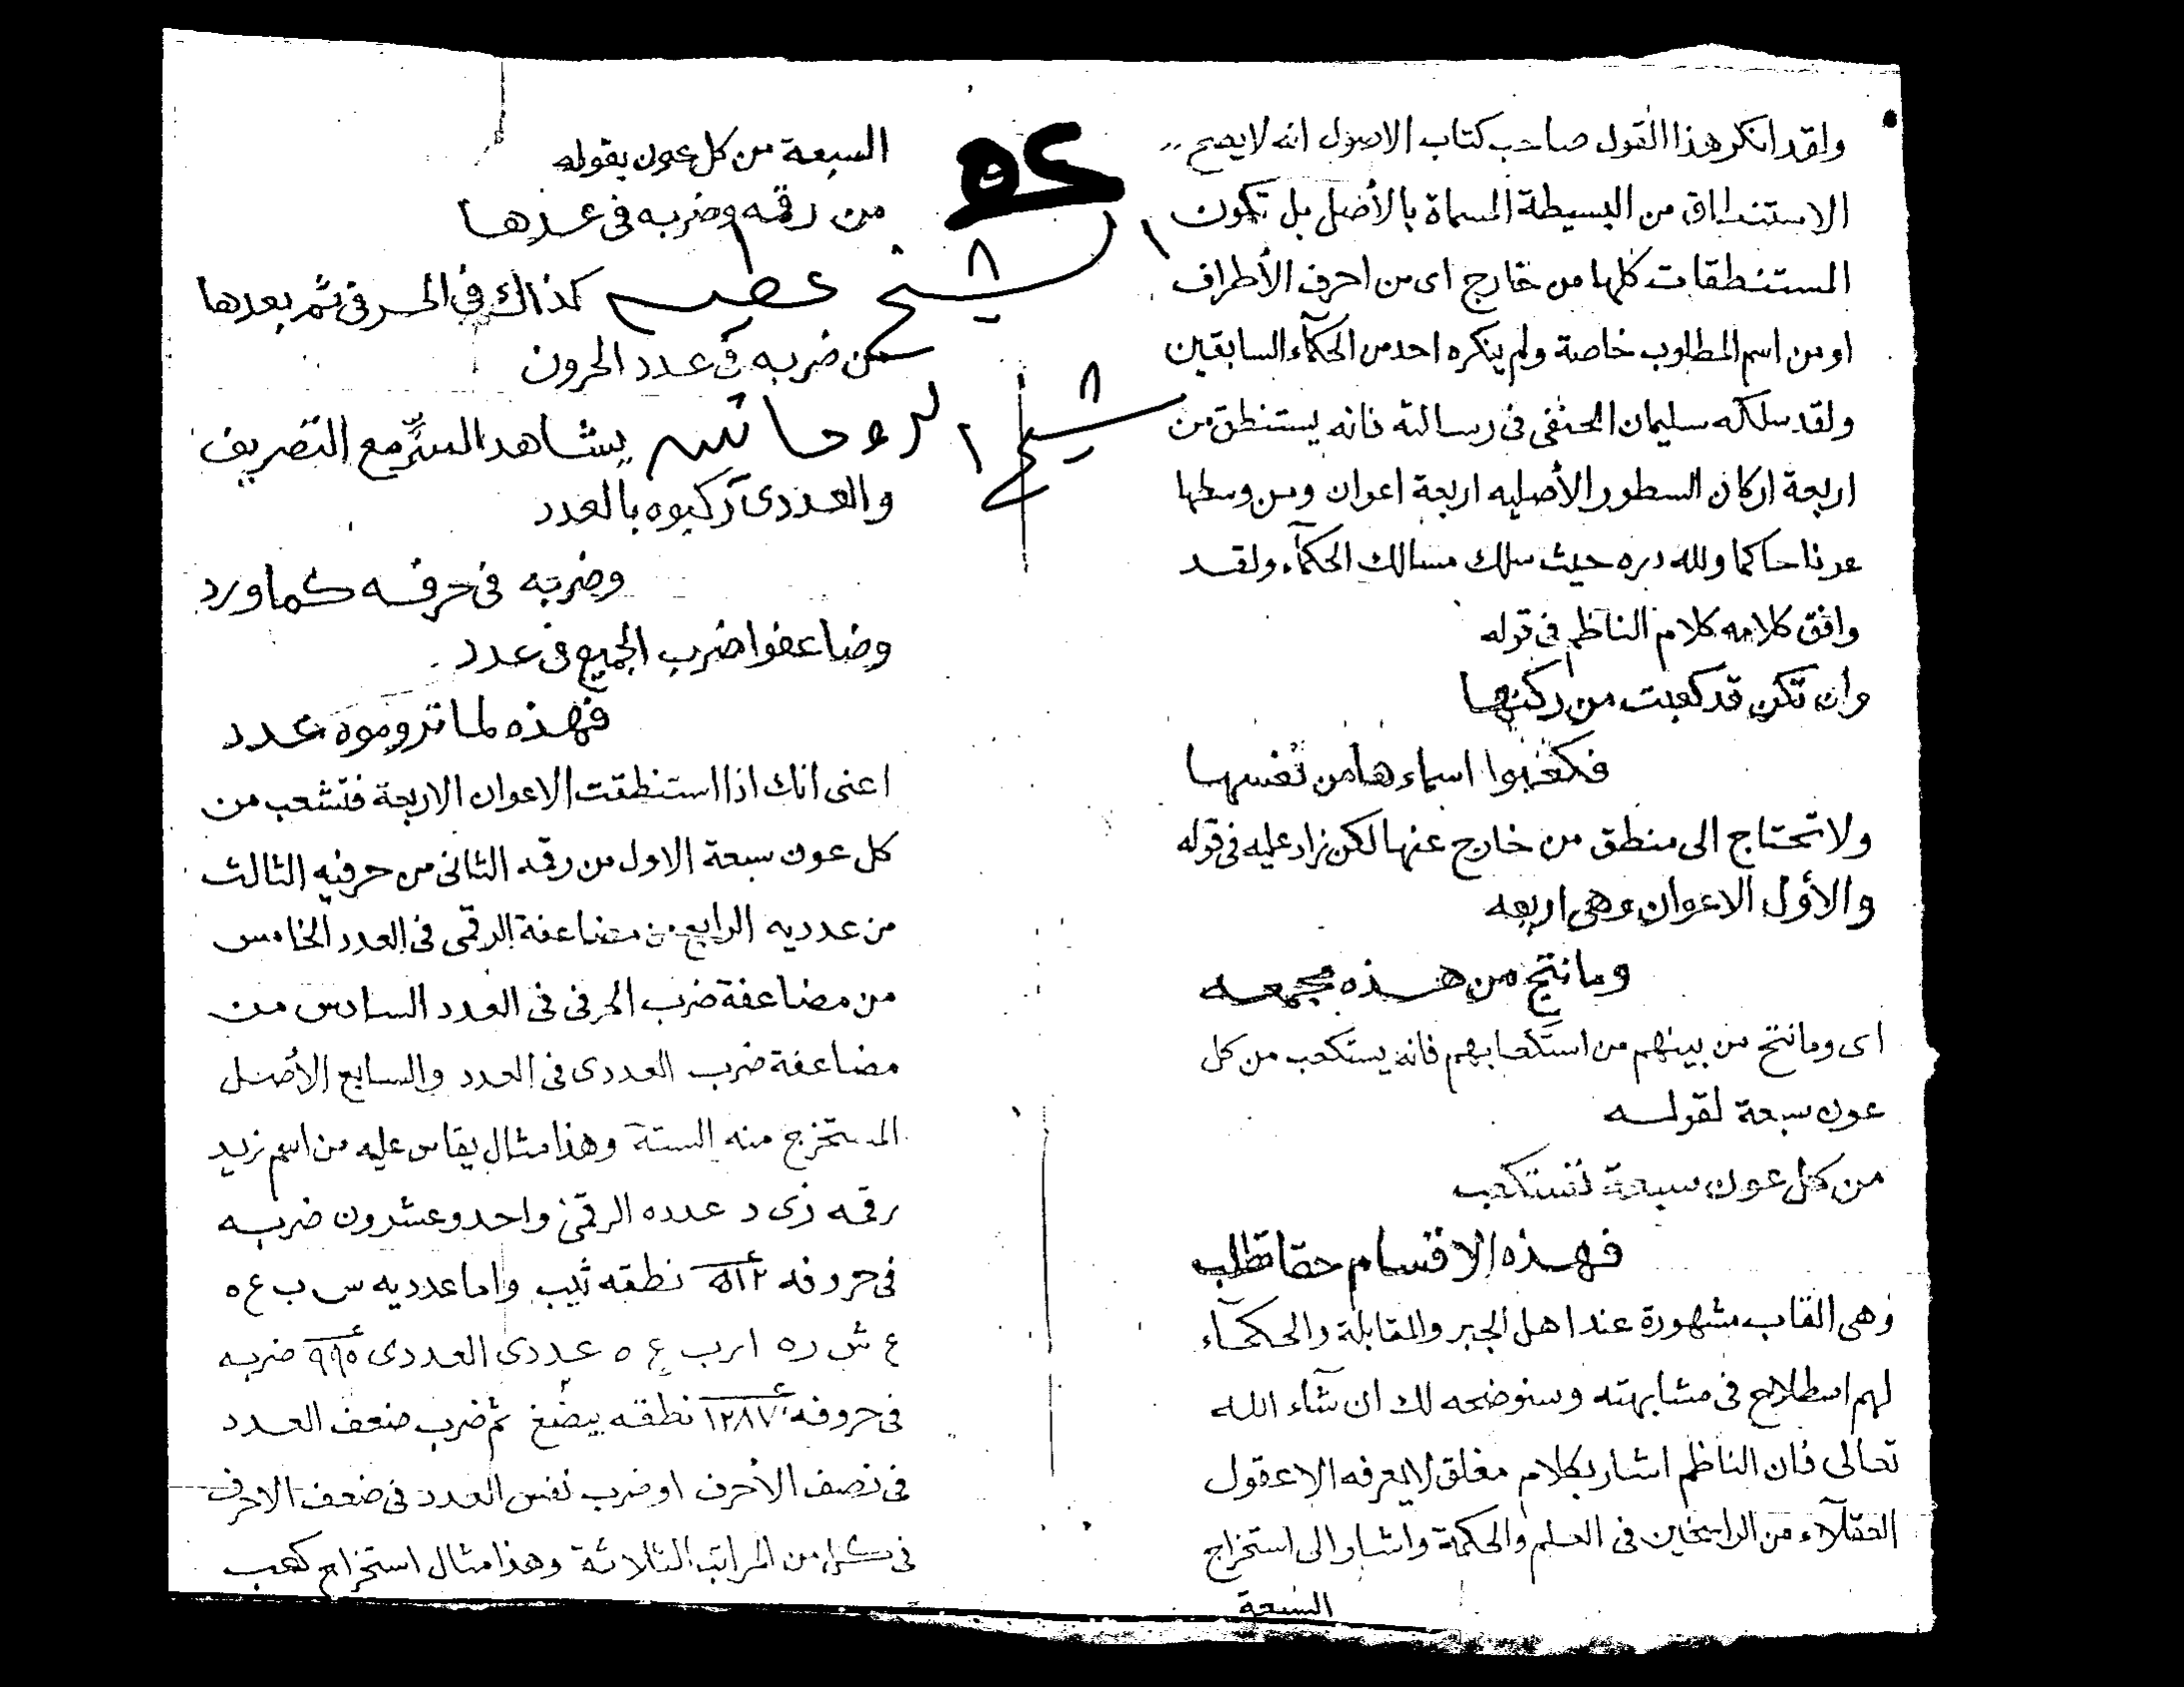 ولقد انكر هذا القول صاحب كتاب الاصول انه لا يصح
الاستنطاق من البسيطة المسماة بالأصل بل تكون
المستنطقات كلها من خارج اى من احرف الأطراف
او من اسم المطلوب خاصة ولم ينكره احد من الحكماء السابقين
ولقد سلكه سليمان الحنفى فى رسالته فانه يستنطق من
اربعة اركان السطور الأصليه اربعة اعوان ومن وسطها
عونا حاكما ولله دره حيث سلك مسالك الحكماء ولقد
وافق كلامه كلام الناظم فى قوله
وان تكن قد كعبت من ركنها
فكعبوا اسماءها من نفسها
ولا تحتاج الى منطق من خارج عنها لكن زاد عليه فى قوله
والأول الاعوان وهى اربعه
وما نتج من هذه مجمعه
اى وما نتج من بينهم من استكعابهم فانه يستكعب من كل
عون سبعة لقوله
من كل عون سبعة تستكعب
فهذه الاقسام حقا تطلب
وهى القاب مشهورة عند اهل الجبر والمقابلة والحكماء
لهم اصطلاح فى مشابهته وسنوضحه لك ان شآء الله
تعالى فان الناظم اشار بكلام مغلق لا يعرفه الا عقول
العقلآء من الراسخين فى العلم والحكمة واشار الى استخراج
السبعة
السبعة من كل عون بقوله
من رقمه وضربه فى عدها
كذاك فى الحرفى ثم بعدها
من ضربه فى عدد الحرون
يشاهد السر مع التصريف
والعددى ركبوه بالعدد
وضربه فى حرفه كما ورد
وضاعفوا ضرب الجميع فى عدد
فهذه لما تروموه عدد
اعنى انك اذا استنطقت الاعوان الاربعة فتشعب من
كل عون سبعة الاول من رقمه الثانى من حرفيه الثالث
من عدديه الرابع من مضاعفة الرقمى فى العدد الخامس
من مضاعفة ضرب الحرفى فى العدد السادس من
مضاعفة ضرب العددى فى العدد والسابع الأصل
المستخرج منه الستة وهذا مثال يقاس عليه من اسم زيد
رقمه زى د عدده الرقمى واحد وعشرون ضربه
فى حروفه ٥١٢ نطقه ثيب واما عدديه س ب ع ه
ع ش ر ه ا ر ب ع ه عددى العددى ٩٩٥ ضربه
فى حروفه ١٢٨٧ نطقه بيضغ ثم ضرب ضعف العدد
فى نصف الأحرف او ضرب نفس العدد فى ضعف الاحرف
فى كل من المراتب الثلاثة وهذا مثال استخراج كعب
الشيخ
شيخ الروحانى